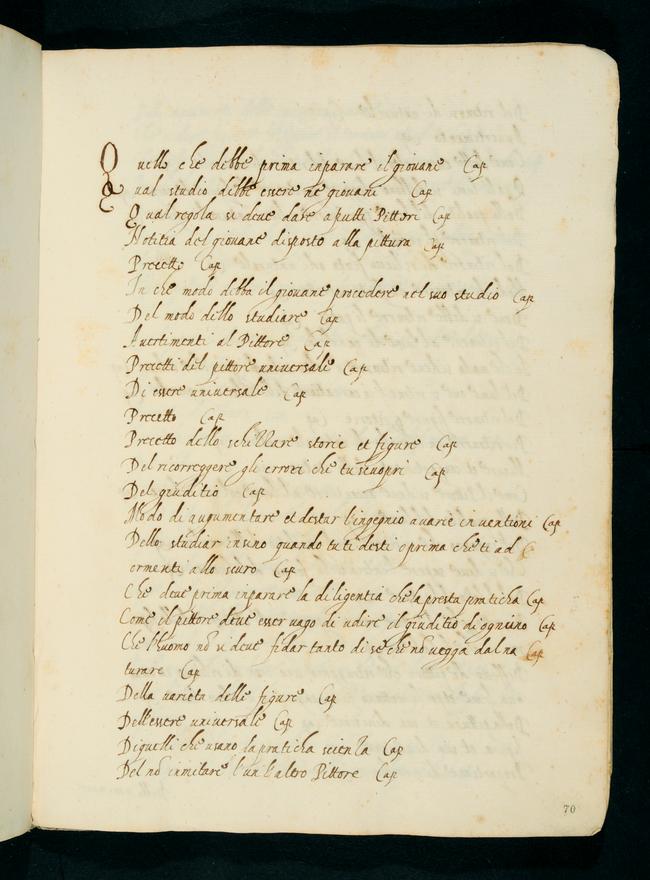 Quello che debbe prima inparare il giovane Cap
Qual studio debbe essere ne giovani Cap
Qual regola si deve dare a putti Pittori Cap
Notitia del giovane disposto alla pittura Cap
Precetto Cap
In che modo debba il giovane procedere nel suo studio Cap
Del modo dello studiare Cap
Avertimenti al Pittore Cap
Precetti del pittore universale Cap
Di essere universale Cap
Precetto Cap
Precetto dello schizzare storie et figure Cap
Del ricorreggere gli errori che tu scuopri Cap
Del giuditio Cap
Modo di augumentare et destar l'ingegnio a varie inventioni Cap
Dello studiar insino quando tu ti desti o prima che ti ad
ormenti allo scuro Cap
Che deve prima inparare la diligentia che la presta praticha Cap
Come il pittore deve esser vago di udire il giuditio di ogniuno Cap
Che l'huomo nō si deve fidar tanto di se che nō vegga dal na
turare Cap
Della varieta delle figure Cap
Dell'essere universale Cap
Di quelli che usano la praticha scienza Cap
Del nō inmitare l'un l'altro Pittore Cap
70